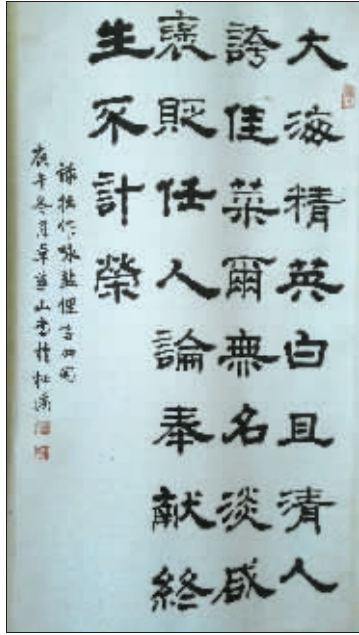 大海精英白且清人
誇佳菜爾無名淡咸
褒貶任人論奉献終
生不計榮
錄拙作咏盐俚言四句
庚午冬月卓山書於